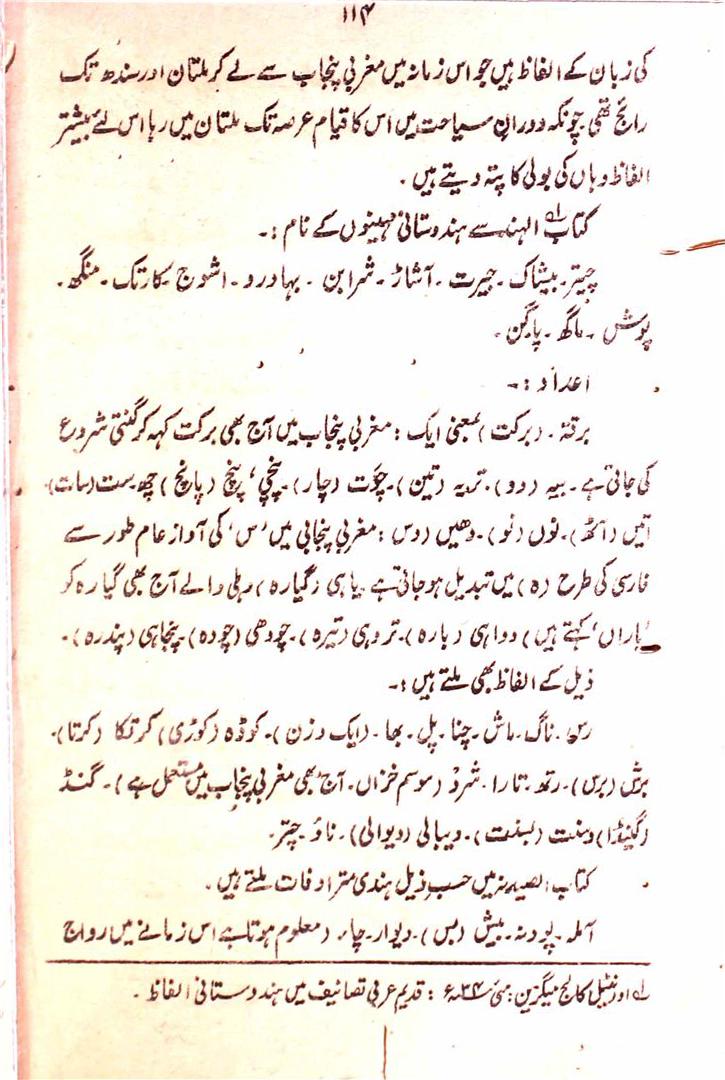 ۱۱۴
کی زبان کے الفاظ ہیں جو اس زمانہ میں مغربی پنجاب سے لے کر ملتان اور سندھ تک
رائج تھی چونکہ دوران سیاحت میں اس کا قیام عرصہ تک ملتان میں رہا اس لئے بیشتر
الفاظ وہاں کی بولی کا پتہ دیتے ہیں ۔
کتاب الہند سے ہندوستانی مہینوں کے نام :۔
چیتر۔ بیشاک۔ جیرت ۔ آشاڑ۔ شرابن ۔ بہادرو۔ اشوج ۔ کارتک۔ منگھ۔
پوش ۔ ماگھ ۔ پاگن ۔
اعداد :۔
برقتہ ۔ (برکت) بمعنی ایک : مغربی پنجاب میں آج بھی برکت کہہ کر گنتی شروع
کی جاتی ہے۔ بیہ (دو)۔ تریہ (تین)۔ چوَت (چار)۔ پنچی، پرنچ (پانچ) چھ ست (سات)۔
اتیں (آٹھ)۔ نوں (نو)۔ دھیں (دس : مغربی پنجابی میں ’س‘ کی آواز عام طور سے
فارسی کی طرح (ہ) میں تبدیل ہو جاتی ہے۔ یاہی (گیارہ) دہلی والے آج بھی گیارہ کو
’یاراں‘ کہتے ہیں) دواہی (بارہ)۔ تروہی (تیرہ)۔ چودھی (چودہ)۔ پنجاہی (پندرہ)۔
ذیل کے الفاظ بھی ملتے ہیں :۔
رس۔ ناگ۔ ماش۔ چنا۔ پل۔ بھا۔ (ایک وزن)۔ کوڈہ (کوڑی) کرتکا (کرتا)۔
برش (برس)۔ رتھ۔ تارا۔ شرد (موسم خزاں۔ آج بھی مغربی پنجاب میں مستعمل ہے)۔ گنڈ
(گینڈا) وسنت (بسنت)۔ دیبالی (دیوالی)۔ ناؤ۔ چتر۔
کتاب الصیدنہ میں حسب ذیل ہندی مترادفات ملتے ہیں ۔
آملہ۔ پودنہ۔ بیش (بس)۔ دیوار۔ چاء (معلوم ہوتا ہے اس زمانے میں رواج
لے اورنٹیل کالج میگزین : مئی ۳۴ء : قدیم عربی تصانیف میں ہندوستانی الفاظ ۔